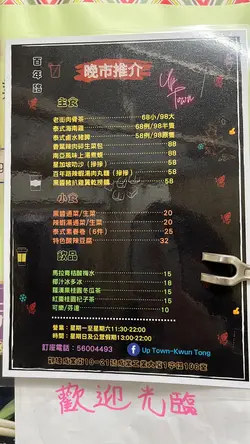 百年路
晚市推介
Up Town
主食
老街肉骨茶 68小/98大
泰式海南雞 58例/98半隻
泰式鹵水豬腳 58例/98原隻
香葉辣肉碎生菜包 88
南亞風味上湯煮蜆 98
星加坡叻沙（撈撈） 58
百年路辣蝦湯肉丸麵（撈撈） 58
黑醬豬扒雞翼乾撈麵 58
小食
黑醬通菜/生菜 20
辣蝦湯通菜/生菜 20
泰式素春卷（6件 25
特色酸辣豆腐 32
飲品
馬拉青桔酸梅水 15
椰汁冰多冰 18
羅漢果桂圓冬瓜茶 15
紅棗桂圓杞子茶 15
可樂/芬達 10
營業：星期一至星期六11:30-22:00
時間：星期日及公眾假期13:00-22:00
訂座電話：56004493
Up Town-Kwun Tong
歡迎光臨